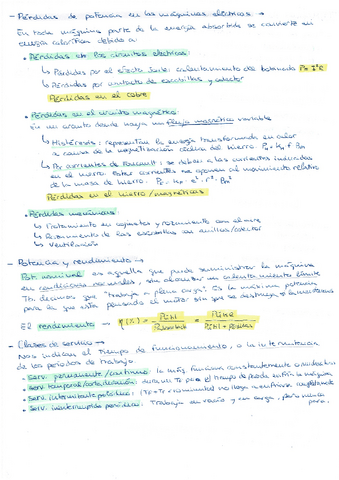 - Pérdidas de potencia en las máquinas eléctricas →
En toda máquina parte de la energía absorbida se convierte en
energía calorífica debido a:
• Pérdidas en los circuitos eléctricos:
↳ Pérdidas por el efecto Joule: calentamiento del bobinado P= I²R
↳ Pérdidas por contacto de escobillas y colector
Pérdidas en el cobre
• Pérdidas en el circuito magnético:
En un circuito donde haya un flujo magnético variable
↳ Histéresis: representa la energía transformada en calor
a causa de la magnetización cíclica del hierro.
↳ Por corrientes de Foucault: se deben a las corrientes inducidas
en el hierro. Estas corrientes se oponen al movimiento relativo
de la masa de hierro.
Pérdidas en el hierro/magnéticas
• Pérdidas mecánicas:
↳ Rozamiento en cojinetes y rozamiento con el aire
↳ Rozamiento de las escobillas en anillos/colector
↳ Ventilación
- Potencia y rendimiento →
Pot. nominal es aquella que puede suministrar la máquina
en condiciones normales, sin alcanzar un calentamiento límite
Tb. decimos que "trabaja a plena carga". Es la máxima potencia
para la que está pensado el motor sin que se destruya
El rendimiento → η(%) =
- Clases de servicio →
Nos indican el tiempo de funcionamiento, o la intermitencia
de los periodos de trabajo.
• Serv. permanente/continuo: la máq funciona constantemente
• Serv. temporal/corta duración:
• Serv. intermitente periódico:
• Serv. ininterrumpido periódico: Trabaja en vacío y en carga, pero nunca
para.